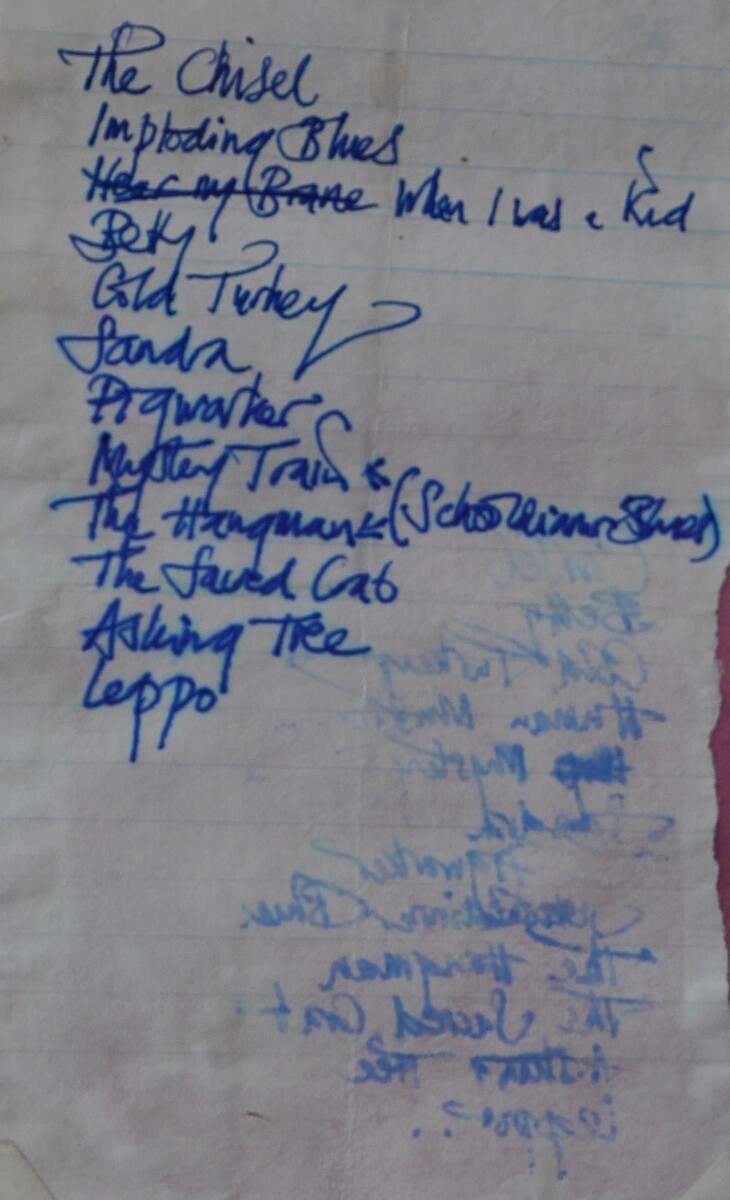 The Chisel
Imploding Blues
Hear my Brane When I was a Kid
Betty
Cold Turkey
Sandra
Pigworker
Mystery Train
The Hangman (Schooldinner Blues)
The Saved Cat
Asking Tree
Leppo
Betty
Cold Turkey
Human
Mystery
Sandra
Pigworker
Schooldinner Blues
The Hangman
The Saved Cat
Asking Tree
Leppo